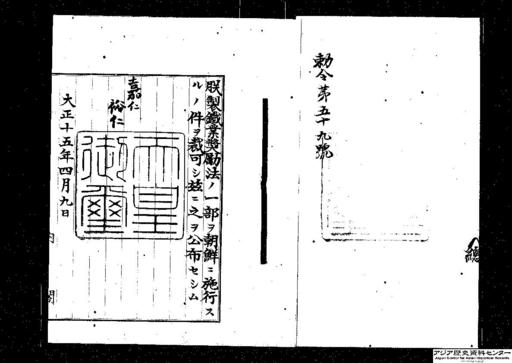 勅令第五十九號
朕製鐵業奬勵法ノ一部ヲ朝鮮ニ施行ス
ルノ件ヲ裁可シ玆ニ之ヲ公布セシム
嘉仁
裕仁
天皇御璽
大正十五年四月九日
内閣
アジア歴史資料センター
Japan Center for Asian Historical Records